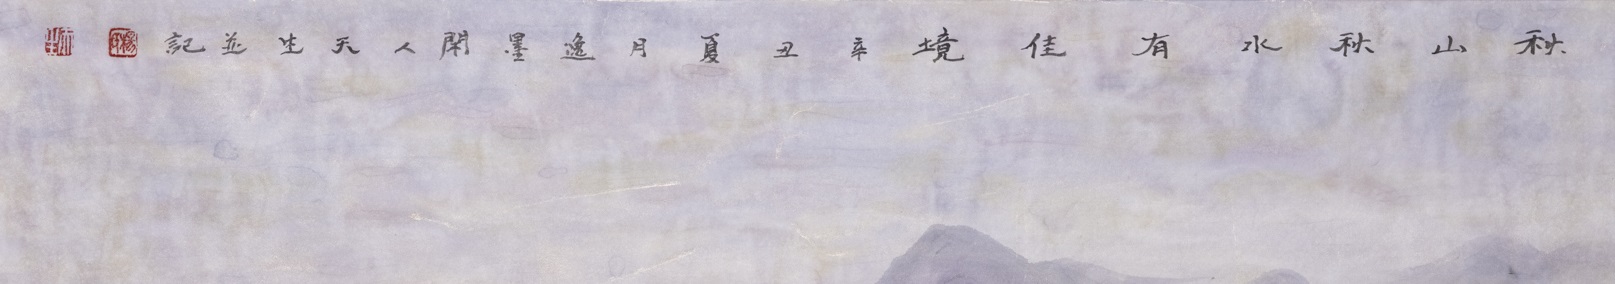 秋山秋水有佳境辛丑夏月逸墨閑人天生並記